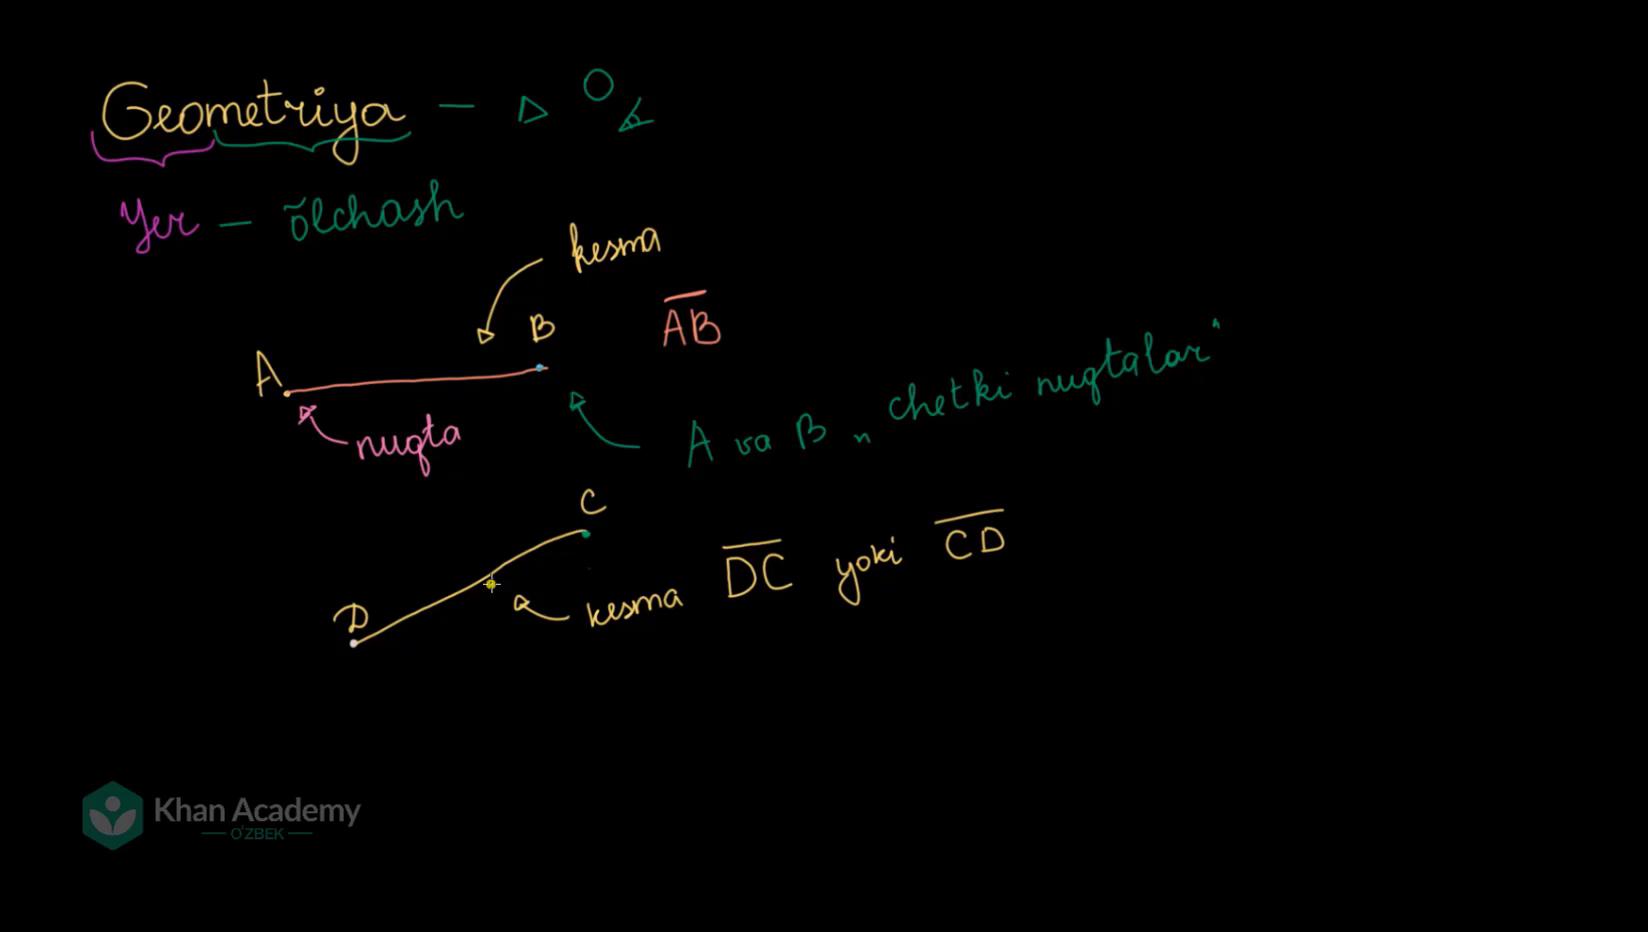 Geometriya –
Yer – õlchash
kesma
A B
A̅B̅
nuqta
A va B „ chetki nuqtalar"
C
D
kesma D̅C̅ yoki C̅D̅
Khan Academy
O'ZBEK